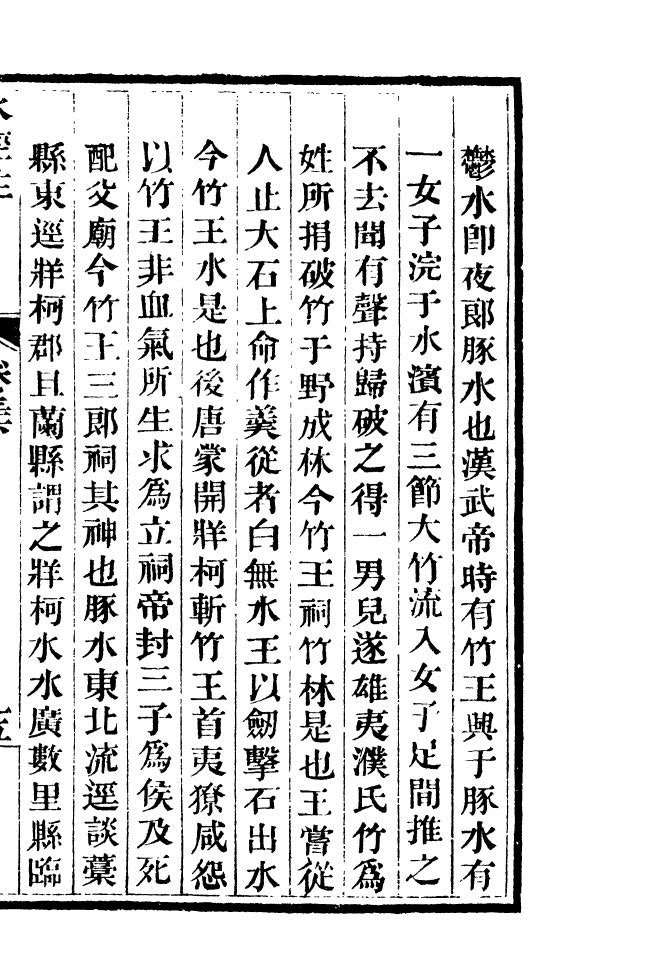 鬱水卽夜郞豚水也漢武帝時有竹王興于豚水有
一女子浣于水濱有三節大竹流入女子足間推之
不去聞有聲持歸破之得一男兒遂雄夷濮氏竹爲
姓所捐破竹于野成林今竹王祠竹林是也王嘗從
人止大石上命作羹從者白無水王以劒擊石出水
今竹王水是也後唐蒙開牂柯斬竹王首夷獠咸怨
以竹王非血氣所生求爲立祠帝封三子爲侯及死
配父廟今竹王三郞祠其神也豚水東北流逕談藳
縣東逕牂柯郡且蘭縣謂之牂柯水水廣數里縣臨